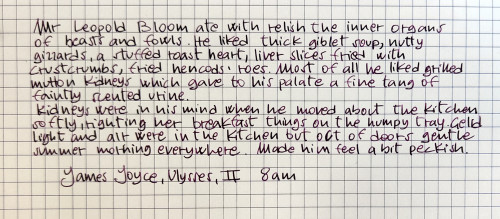 Mr Leopold Bloom ate with relish the inner organs
of beasts and fowls. He liked thick giblet soup, nutty
gizzards, a stuffed roast heart, liver slices fried with
crustcrumbs, fried hencods' roes. Most of all he liked grilled
mutton kidneys which gave to his palate a fine tang of
faintly scented urine.
Kidneys were in his mind when he moved about the kitchen
softly, righting her breakfast things on the humpy tray. Gelid
light and air were in the kitchen but out of doors gentle
summer morning everywhere. Made him feel a bit peckish.
James Joyce, Ulysses, II 8am